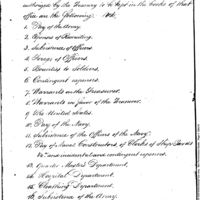 authorized by the Treasury to be kept in the books of that
Office are the following. Viz.
1. Pay of the Army.
2. Expenses of Recruiting.
3. Subsistence of Officers
4. Forage of Officers.
5. Bounties to Soldiers.
6. Contingent expenses.
7. Warrants on the Treasurer.
8. Warrants in favor of the Treasurer.
9. The United States.
10. Pay of the Navy.
11. Subsistence of the Officers of the Navy.
12. Pay of Naval Constructors of Clerks of Ship Yards
&ca and incidental and contingent expenses.
13. Quarter Masters Department.
14. Hospital Department.
15. Cloathing Department.
16. Subsistence of the Army.